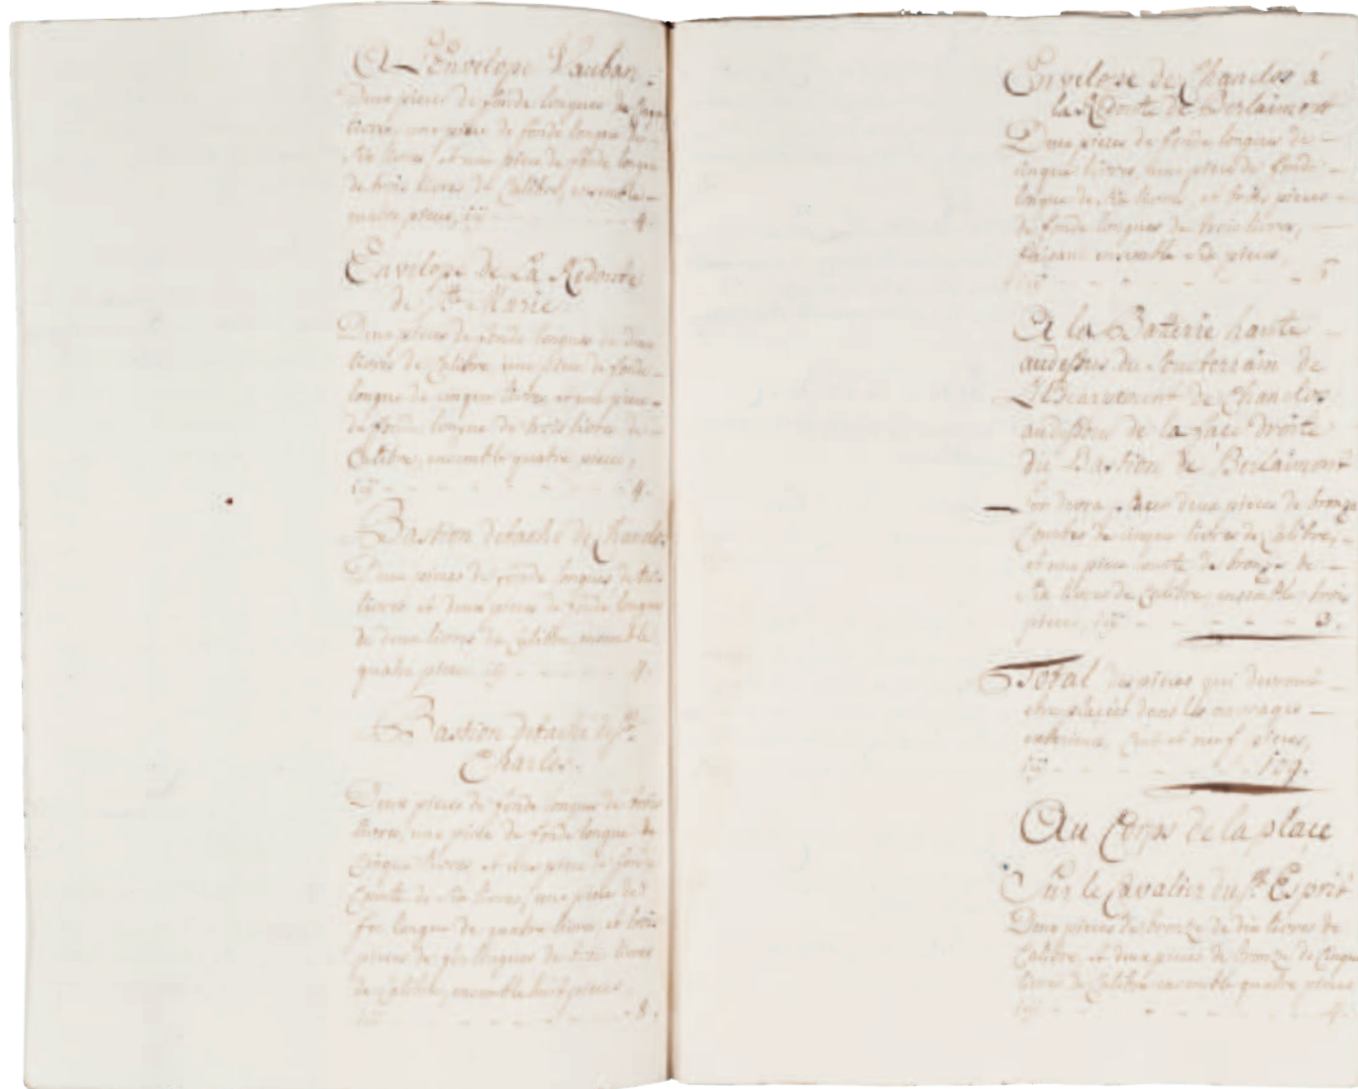 A L'Envelope Vauban –
Deux pieces de fonde longues de cinq
livres, une piece de fonde longue de
six livres, et une piece de fonde longue
de trois livres de Calibre, ensemble –
quatre pieces, - - - 4.
Envelope de La Redoute
de Ste Marie
Deux pieces de fonde longues de deux
livres de Calibre, une piece de fonde –
longue de cinque livres et une piece –
de fonde longue de trois livres de –
Calibre, ensemble quatre pieces,
- - - - - - 4.
Bastion detaché de Chanclos
Deux pieces de fonde longues de trois
livres et deux pieces de fonde longues
de deux livres de Calibre, ensemble
quatre pieces - - - 4.
Bastion detaché de St
Charles.
Deux pieces de fonde longue de trois
livres, une piece de fonde longue de
Cinque livres et une piece de fonde
Courte de six livres, une piece de
fer longue de quatre livres, et trois
pieces de fer longues de trois livres
de Calibre, ensemble huit pieces
- - - - - - 8.
Envelope de Chanclos à
la Redoute de Berlaimont
Deux pieces de fonde longues de –
cinque livres, une piece de fonde –
longue de six livres, et trois pieces –
de fonde longues de trois livres, –
faisant ensemble six pieces,
- - - - - - 6
A la Batterie haute –
audessus du Souterain de
L'Ecartement de Chanclos
audessous de la face droite
du Bastion de Berlaimont
on devra placer deux pieces de bronze
Courtes de cinque livres de Calibre, –
et une piece courte de bronze de –
six livres de Calibre ensemble trois
pieces, - - - - - 3.
Total des pieces qui devront –
etre placées dans les ouvrages –
exterieurs, Cent et neuf pieces,
- - - - - 109.
Au Corps de la place
Sur le Cavalier du St Esprit
Deux pieces de bronze de dix livres de
Calibre, et deux pieces de bronze de Cinque
livres de Calibre ensemble quatre pieces
- - - - - - 4.